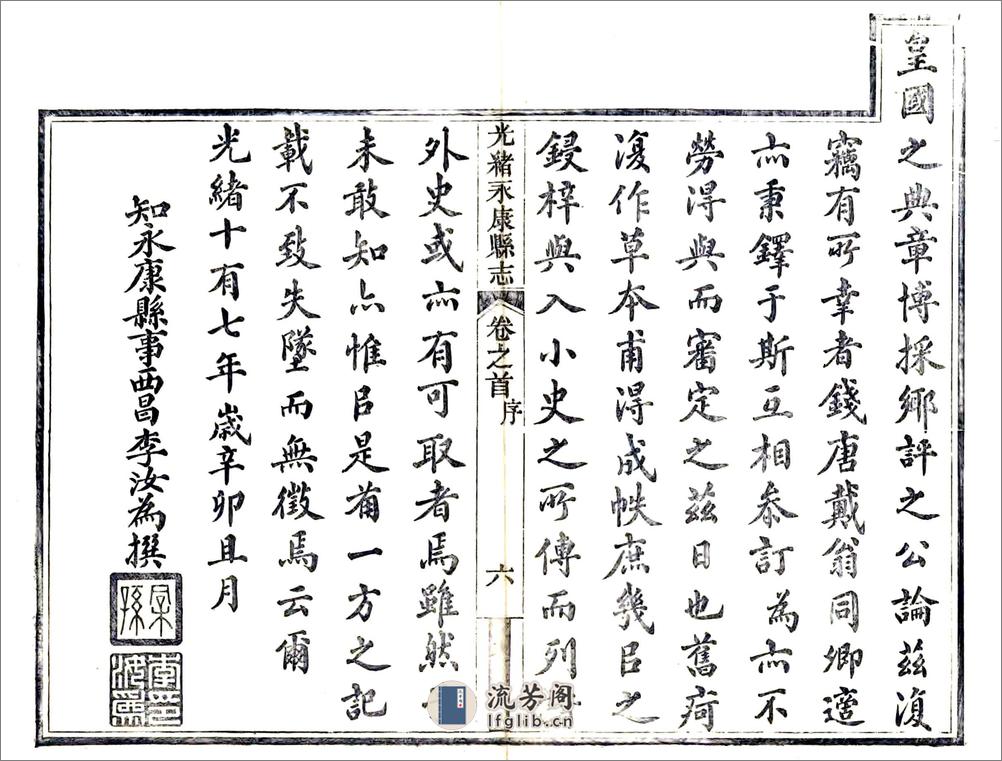 皇國之典章博採鄉評之公論茲復
竊有所幸者錢唐戴翁同卿適
亦秉鐸于斯互相叅訂為亦不
勞得與而審定之茲日也舊疴
復作草本甫得成帙庶幾㠯之
鋟梓與入小史之所傳而列
光緒永康縣志 卷之首 序 六
外史或亦有可取者焉雖然
未敢知亦惟㠯是備一方之記
載不致失墜而無徵焉云爾
光緒十有七年歲辛卯且月
知永康縣事西昌李汝為撰
李印汝為
流芳阁
lfglib.cn